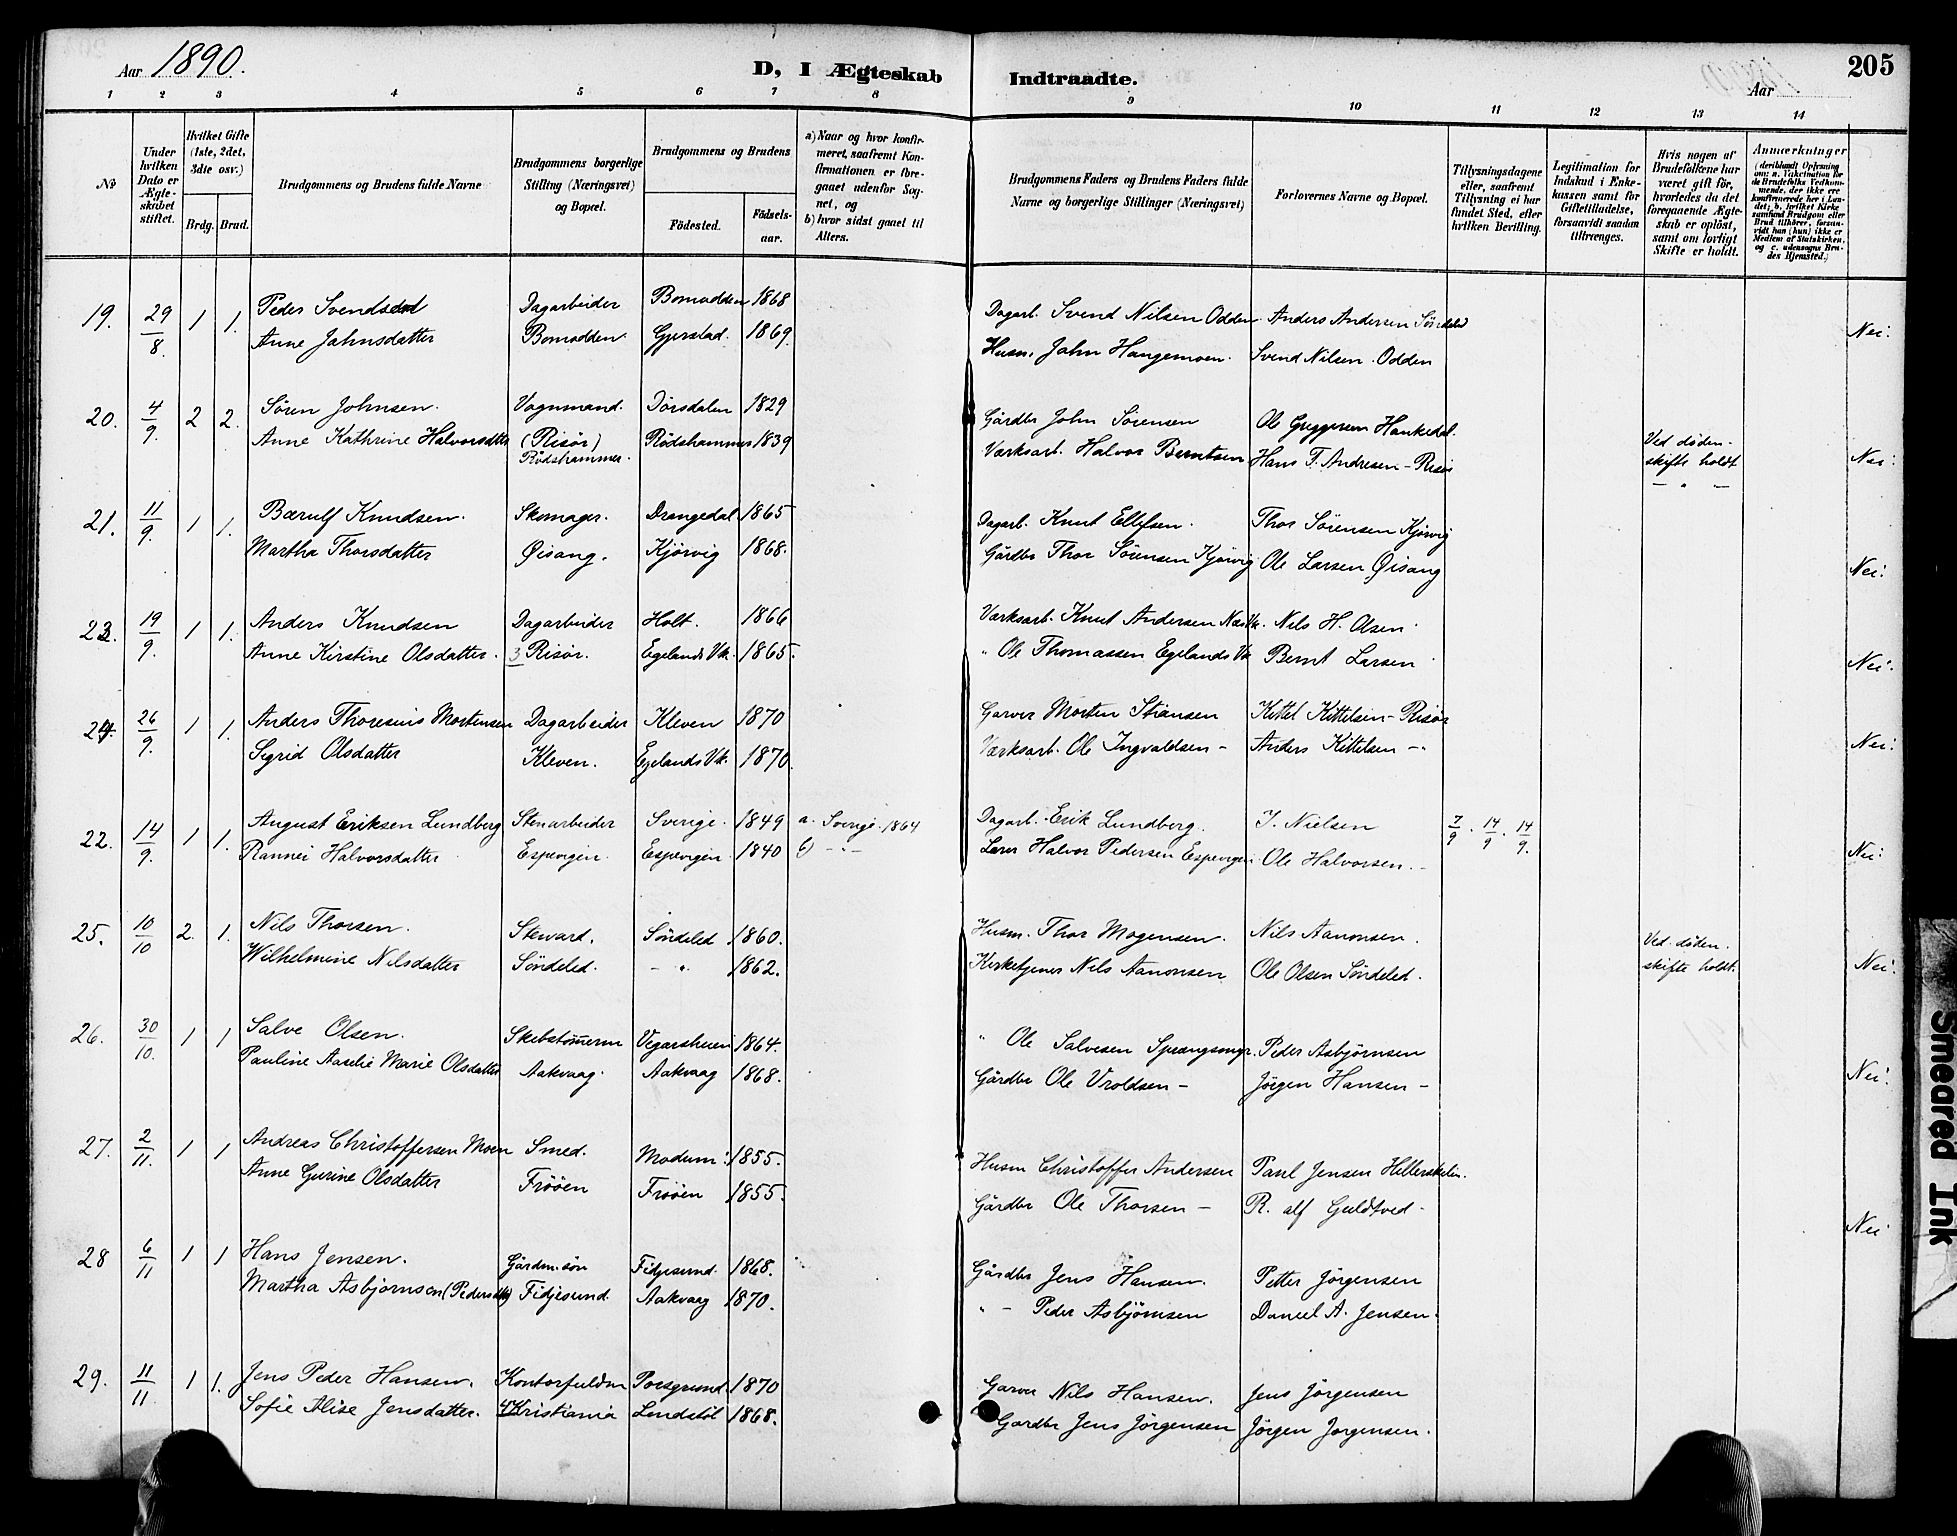 Aar 1890.
D, I Ægteskab Indtraadte.
Aar
205
1 2 3 4 5 6 7 8 9 10 11 12 13 14
№
Under hvilken Dato er Ægteskabet stiftet.
Hvilket Gifte (1ste, 2det, 3die osv.)
Brdg. Brud.
Brudgommens og Brudens fulde Navne
Brudgommens borgerlige Stilling (Næringsvei) og Bopæl.
Brudgommens og Brudens
Födested. Födselsaar.
a) Naar og hvor konfirmeret, saafremt Konfirmationen er foregaaet udenfor Sognet, og
b) hvor sidst gaaet til Alters.
Brudgommens Faders og Brudens Faders fulde Navne og borgerlige Stillinger (Næringsvei)
Forlovernes Navne og Bopæl.
Tillysningsdagene eller, saafremt Tillysning ei har fundet Sted, efter hvilken Bevilling.
Legitimation for Indskud i Enkekassen samt for Giftetilladelse, forsaavidt saadan tiltrænges.
Hvis nogen af Brudefolkene har været gift för, hvorledes da det foregaaende Ægteskab er oplöst, samt om lovligt Skifte er holdt.
Anmærkninger (deriblandt Oplysning om: a. Vakcination for de Brudefolks Vedkommende, der ikke ere konfirmerede her i Landet; b. hvilket Kirkesamfund Brudgom eller Brud tilhörer, forsaavidt han (hun) ikke er Medlem af Statskirken, og c. udensogns Brudes Hjemsted.)
19. 29/8. 1 1. Peder Svendsen Dagarbeider Bomodden 1868 Dagarb. Svend Nilsen Odden Anders Andersen Söndeled
Anne Jahnsdatter Bomodden Gjerstad. 1869. Husm. John Haugemoen. Svend Nilsen Odden Nei.
20. 4/9. 2 2. Sören Johnsen. Vognmand. Dörsdalen 1829 Gårdbr John Sörensen Ole Greggersen Hankedal.
Anne Kathrine Halvorsdtter (Risör) Rödshammer 1839 Værksarb. Halvor Berntsen Hans T. Andresen - Risör Ved döden - skifte holdt Nei.
Rödshammer. — " —
21. 11/9. 1 1. Bærulf Knudsen. Skomager. Drangedal 1865 Dagarb. Knut Ellefsen. Thor Sörensen Kjörvig
Martha Thorsdatter Øisang. Kjörvig 1868. Gårdbr Thor Sörensen Kjörvig Ole Larsen Øisang Nei.
23. 19/9. 1 1. Anders Knudsen Dagarbeider Holt. 1866 Værksarb. Knut Andersen Næs Vk. Nils H. Olsen
Anne Kirstine Olsdatter. 3 Risör. Egelands Vk. 1865. " Ole Thomassen Egelands Vk Bernt Larsen Nei.
24. 26/9. 1 1. Anders Thoresius Mortensen Dagarbeider Kleven 1870 Garver Morten Stiansen Kittel Kittelsen - Risör
Sigrid Olsdatter Kleven. Egelands Vk. 1870. Værksarb. Ole Ingvaldsen - Anders Kittelsen - " Nei.
22. 14/9. 1 1. August Eriksen Lundberg Stenarbeider Sverige. 1849 a. Sverige. 1864 Dagarb. Erik Lundberg. J. Nielsen 7/9. 14/9. 14/9.
Rannei Halvorsdatter Espevigen. Espevigen. 1840 b) - " - Lærer Halvor Pedersen Espevigen Ole Halvorsen. Nei.
25. 10/10 2. 1. Nils Thorsen. Steward. Söndeled 1860. Husm. Thor Mogensen. Nils Aanonsen. Ved döden.
Wilhelmine Nilsdatter Söndeled. - " 1862. Kirketjener Nils Aanonsen Ole Olsen Söndeled. skifte holdt. Nei.
26. 30/10. 1 1 Salve Olsen. Skibstömmerm Vegarsheien 1864. " Ole Salvesen Peder Asbjörnsen
Pauline Aaselie Marie Olsdatter Aakvaag. Aakvaag 1868. Gårdbr Ole Vroldsen - Jörgen Hansen - Nei.
27. 2/11. 1 1 Andreas Christoffersen Moen Smed. Modum. 1855. Husm Christoffer Andersen Paul Jensen
Anne Gurine Olsdatter Frööen Frööen 1855. Gårdbr Ole Thorsen - R. alf Guldtved -
28 6/11 1 1 Hans Jensen. Gårdm.sön Fidjesund. 1868. Gårdbr Jens Hansen. Petter Jörgensen Nei
Martha Asbjörnsen (Pedersdtr) Fidjesund. Aakvaag 1870. " - Peder Asbjörnsen Daniel A. Jensen.
29. 11/11. 1 1. Jens Peder Hansen. Kontorfuldm Porsgrund 1870 Garver Nils Hansen. Jens Jörgensen
Sofie Alise Jensdatter. 4 Kristiania Lindstöl 1868. Gårdbr Jens Jörgensen Jörgen Jörgensen.
Smeared Ink